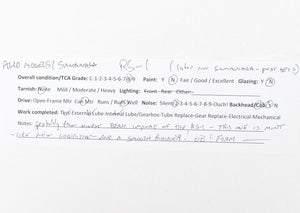 PACO MODELS/SAMHONGSA RS-1 (LATER NOT SAMHONGSA - POST 1972)
Overall condition/TCA Grade: C-1-2-3-4-5-6-7-8-9 Paint: Y N Fair / Good / Excellent Glazing: Y N
Tarnish: None Mild / Moderate / Heavy Lighting: Front Rear Other:
Drive: Open Frame Mtr Can Mtr Runs / Runs Well Noise: Silent-2-3-4-5-6-7-8-9-Ouch! Backhead/Cab: Y N
Work completed: Test External Lube Internal Lube/Gearbox-Tube Replace-Gear Replace-Electrical-Mechanical
Notes: probably the BRASS IMPORT OF THE RS-1 - THIS ONE IS MINT
- LIKE NEW CONDITION AND A SMOOTH RUNNER! FOAM